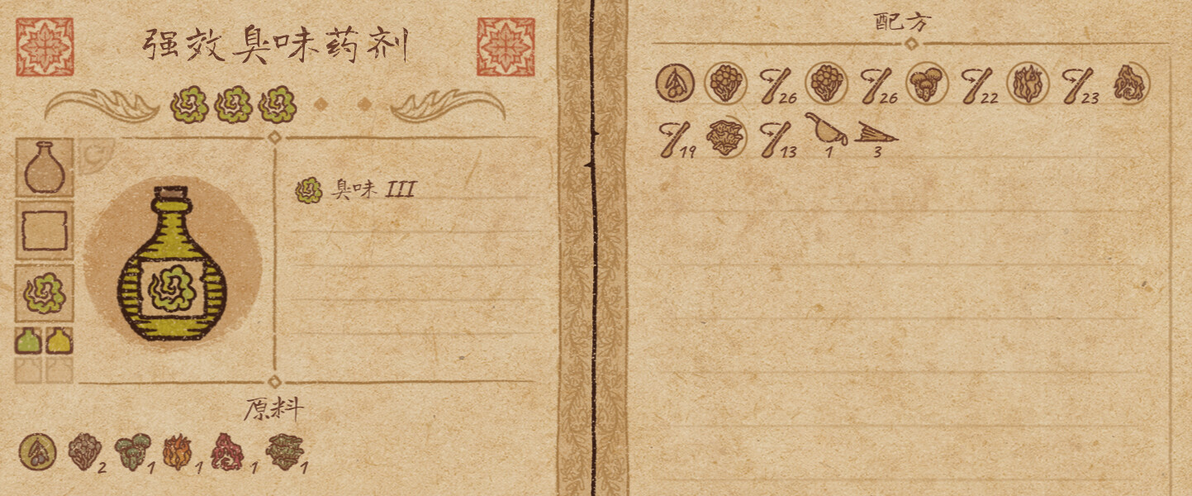 强效臭味药剂
臭味 III
原料
2 1 1 1 1
配方
26 26 22 23
19 13 1 3